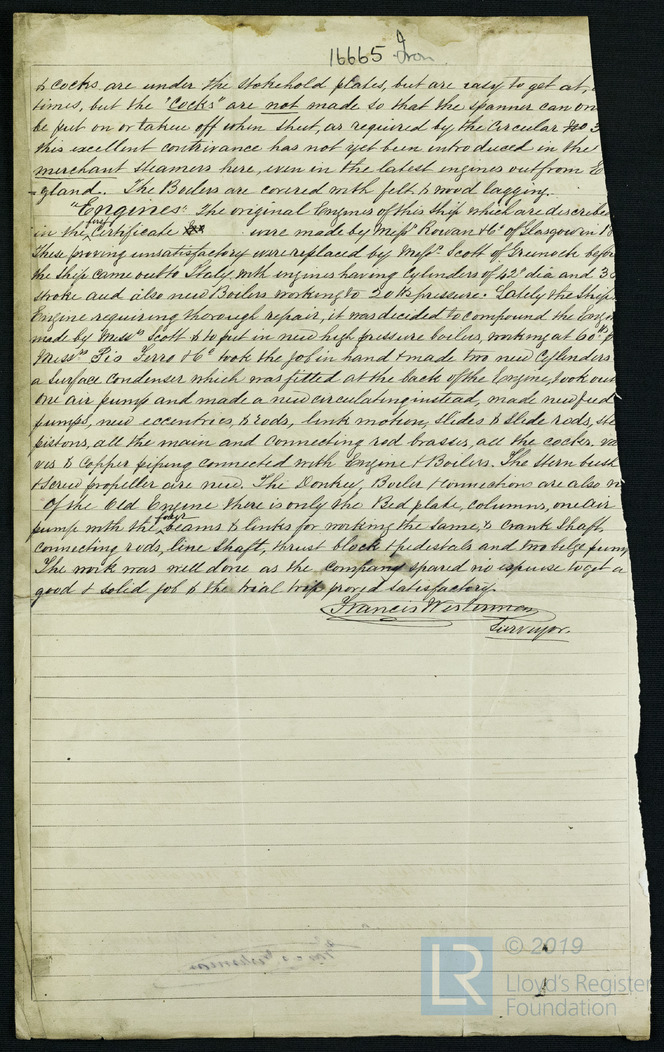 16665 Iron
& cocks are under the stokehold plates, but are easy to get at,
times, but the "Cocks" are not made so that the spanner can on
be put on or taken off when shut, as required by the Circular No 3
this excellent contrivance has not yet been introduced in the
merchant steamers here, even in the latest engines out from E
gland. The Boilers are covered with felt & wood lagging.
"Engines". The original Engines of this Ship which are describe
in the first Certificate were made by Messrs Rowan & Co of Glasgow in 18
These proving unsatisfactory were replaced by Messrs Scott of Greenock befo
the Ship came out to Italy with engines having Cylinders of 42" dia and 3
stroke and also new Boilers working to 20 lbs pressure. Lately the Ship
Engine requiring thorough repair, it was decided to compound the Eng
made by Messrs Scott & to put in new high pressure boilers, working at 60 lbs p
Messrs Fs Ferro & Co took the job in hand & made two new Cylinders
a Surface condenser which was fitted at the back of the Engine, took out
one air pump and made a new circulating instead, made new feed
pumps, new eccentrics, & rods, link motion, slides & slide rods, ste
pistons, all the main and connecting rod brasses, all the cocks, va
ves & copper piping connected with Engine & Boilers. The Stern bush
& screw propeller are new. The Donkey, Boiler & connections are also n
Of the Old Engine there is only the Bed plate, columns, one air
pump with the four beams & links for working the same, & crank shaft,
connecting rods, line shaft, thrust block & pedestals and two belge pum
The work was well done as the Company spared no expense to get a
good & solid job & the trial trip proved satisfactory.
Francis Westerman
Surveyor.
LR
© 2019
Lloyd's Register
Foundation